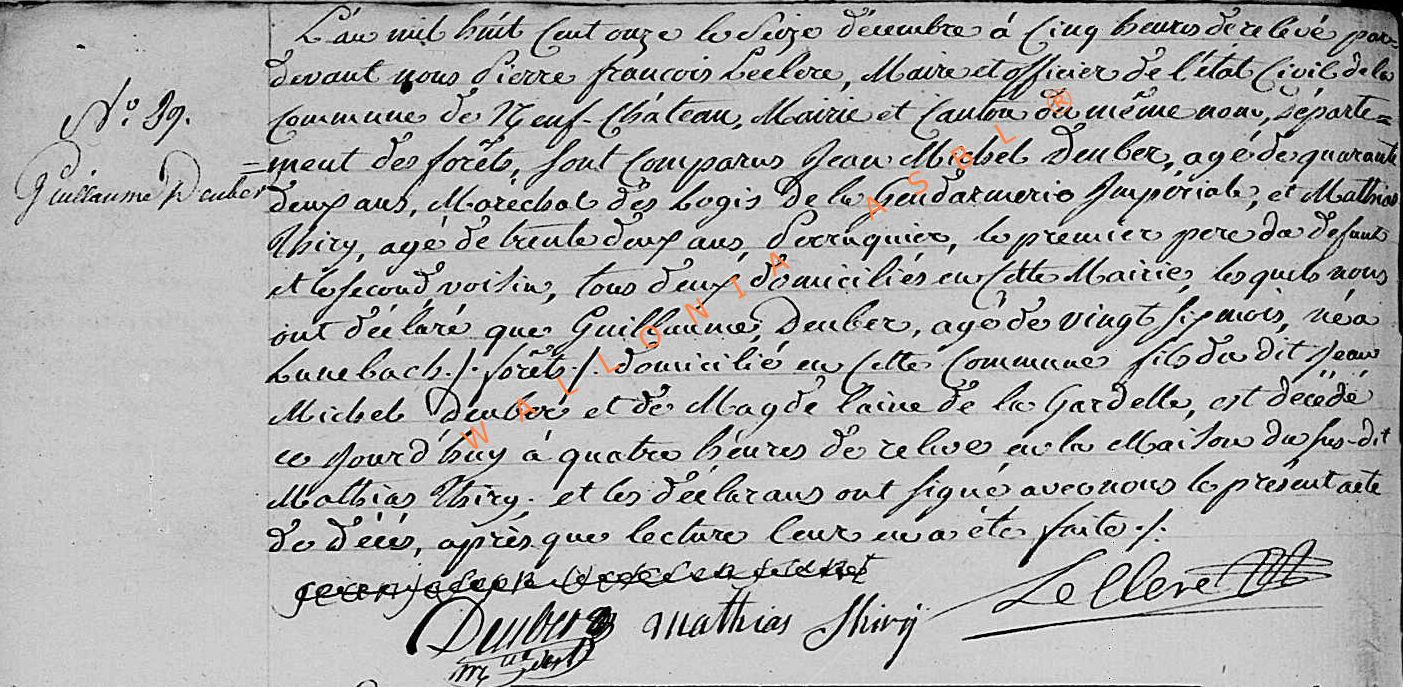 L'an mil huit cent onze le Seize décembre à Cinq heures de relevé par=
devant nous Pierre françois Leclere, Maire et officier de l'état Civil de la
Commune de Neuf-Château, Mairie et Canton du même nom, Départe=
ment des forêts, sont comparus Jean Michel Deuber, agé de quarante
deux ans, Maréchal des Logis de la Gendarmerie Impériale, et Mathias
Thiry, agé de trente deux ans, Perruquier, le premier pere du defunt
et le second voisin, tous deux domiciliés en cette Mairie, lesquels nous
ont déclaré que Guillaume Deuber, agé de vingt six mois, né a
Lunebach ./. forêts ./. domicilié en cette Commune fils du dit Jean
Michel Deuber et de Magdelaine de la Gardelle, est décédé
ce jourd'huy à quatre héures de relevé en la Maison du sus-dit
Mathias Thiry. et les déclarans ont signé avec nous le présent acte
de décés, après que lecture leur en a été faite ./.
N.° 39.
Guillaume Deuber
Deuber
Mathias Thiry
Leclere
WALLONIA ASBL ®